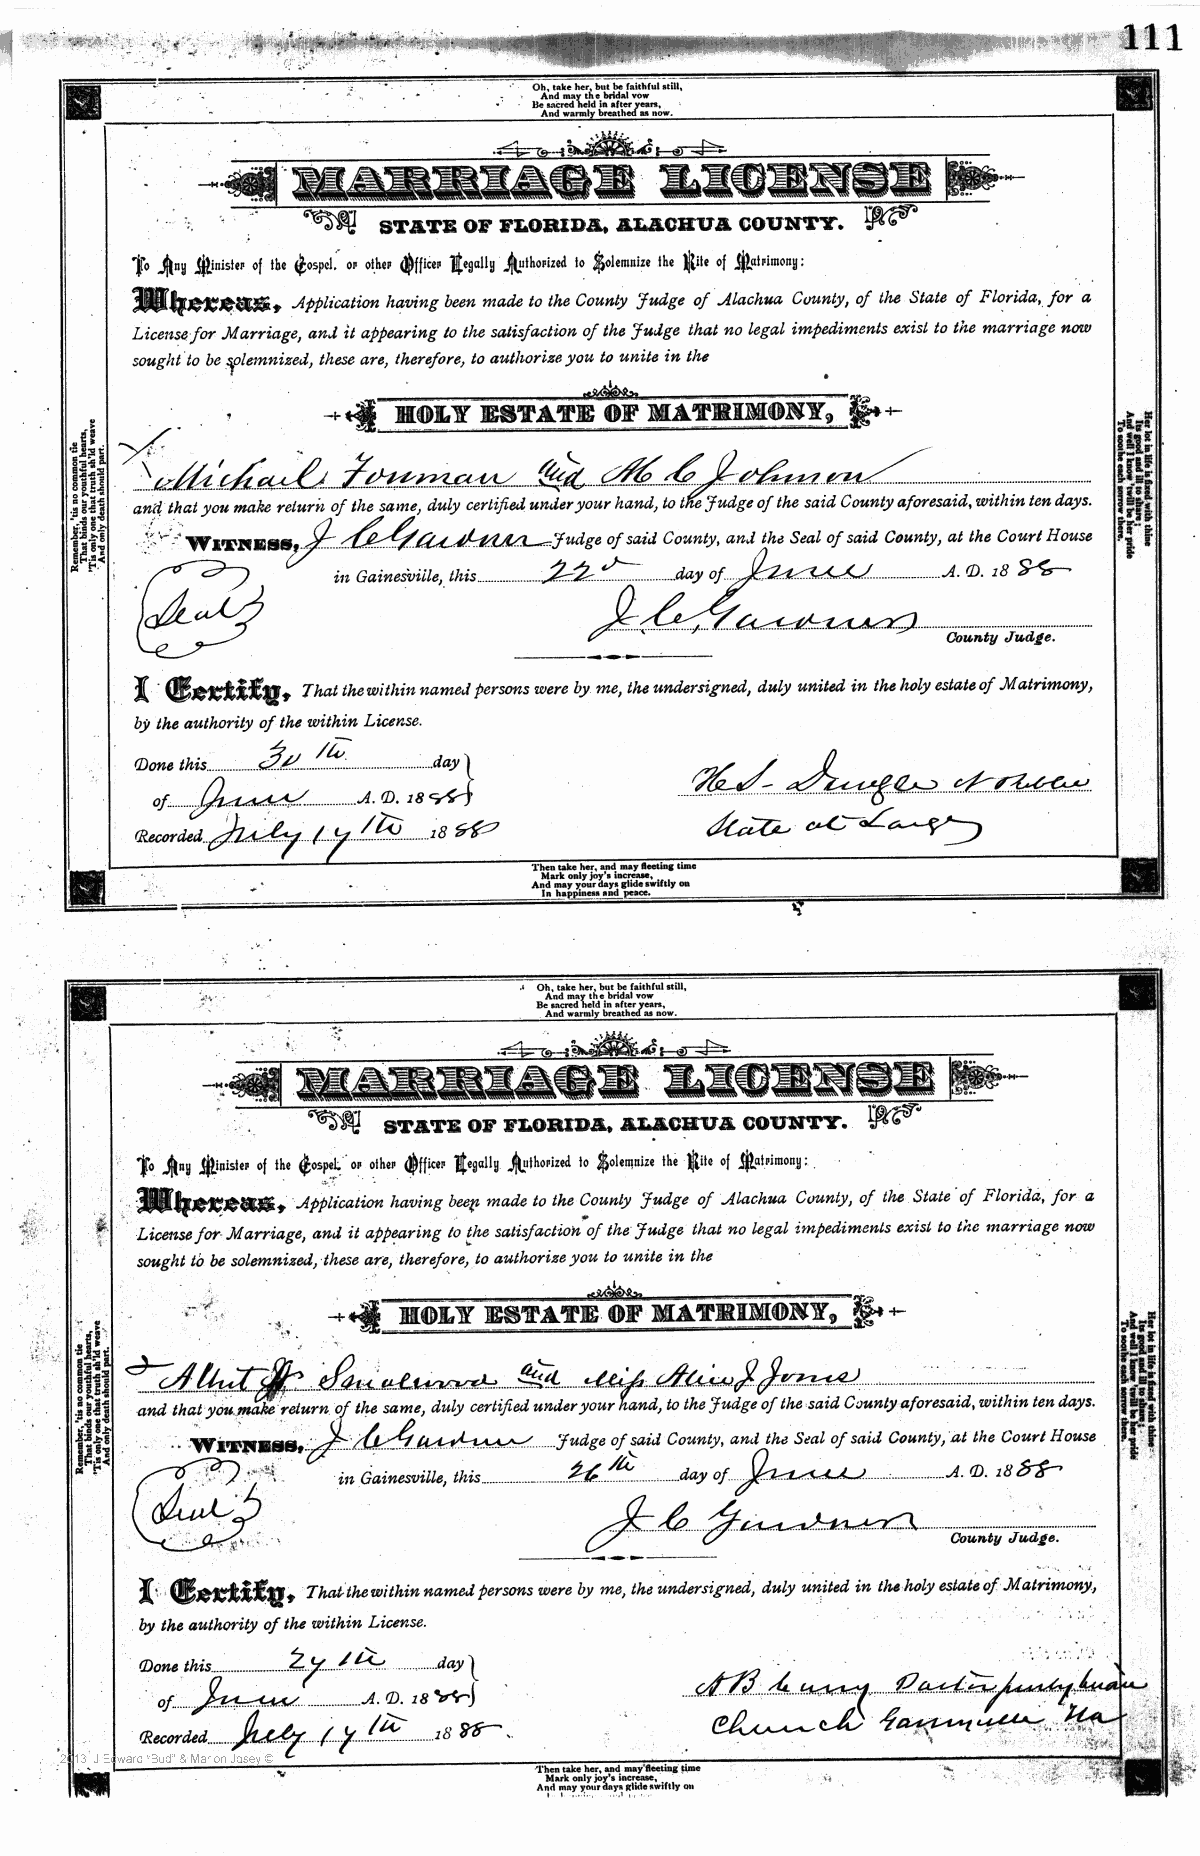 111
Oh, take her, but be faithful still,
And may the bridal vow
Be sacred held in after years,
And warmly breathed as now.
MARRIAGE LICENSE
STATE OF FLORIDA, ALACHUA COUNTY.
To Any Minister of the Gospel, or other Officer Legally Authorized to Solemnize the Rite of Matrimony:
Whereas, Application having been made to the County Judge of Alachua County, of the State of Florida, for a
License for Marriage, and it appearing to the satisfaction of the Judge that no legal impediments exist to the marriage now
sought to be solemnized, these are, therefore, to authorize you to unite in the
HOLY ESTATE OF MATRIMONY,
Michael Forman and M C Johnson
and that you make return of the same, duly certified under your hand, to the Judge of the said County aforesaid, within ten days.
WITNESS, J C Gardner Judge of said County, and the Seal of said County, at the Court House
Seal
in Gainesville, this 22d day of June A. D. 1888
J. C. Gardner
County Judge.
I Certify, That the within named persons were by me, the undersigned, duly united in the holy estate of Matrimony,
by the authority of the within License.
Done this 30th day
of June A. D. 1888
Recorded July 17th 1888
H S
State at Large
Remember, 'tis no common tie
That binds our youthful hearts,
'Tis only one that truth sh'ld weave
And only death should part.
Her lot in life is fixed with thine
Its good and ill to share;
And well I know 'twill be her pride
To soothe each sorrow there.
Then take her, and may fleeting time
Mark only joy's increase,
And may your days glide swiftly on
In happiness and peace.
Oh, take her, but be faithful still,
And may the bridal vow
Be sacred held in after years,
And warmly breathed as now.
MARRIAGE LICENSE
STATE OF FLORIDA, ALACHUA COUNTY.
To Any Minister of the Gospel, or other Officer Legally Authorized to Solemnize the Rite of Matrimony:
Whereas, Application having been made to the County Judge of Alachua County, of the State of Florida, for a
License for Marriage, and it appearing to the satisfaction of the Judge that no legal impediments exist to the marriage now
sought to be solemnized, these are, therefore, to authorize you to unite in the
HOLY ESTATE OF MATRIMONY,
Albert Smalwood and Miss Alice J Jones
and that you make return of the same, duly certified under your hand, to the Judge of the said County aforesaid, within ten days.
WITNESS, J C Gardner Judge of said County, and the Seal of said County, at the Court House
Seal
in Gainesville, this 26th day of June A. D. 1888
J C Gardner
County Judge.
I Certify, That the within named persons were by me, the undersigned, duly united in the holy estate of Matrimony,
by the authority of the within License.
Done this 27th day
of June A. D. 1888
Recorded July 17th 1888
A B Curry Pastor presbyterian
Church Gainesville Fla
Remember, 'tis no common tie
That binds our youthful hearts,
'Tis only one that truth sh'ld weave
And only death should part.
Her lot in life is fixed with thine
Its good and ill to share;
And well I know 'twill be her pride
To soothe each sorrow there.
2013 J Edward "Bud" & Marion Jasey ©
Then take her, and may fleeting time
Mark only joy's increase,
And may your days glide swiftly on